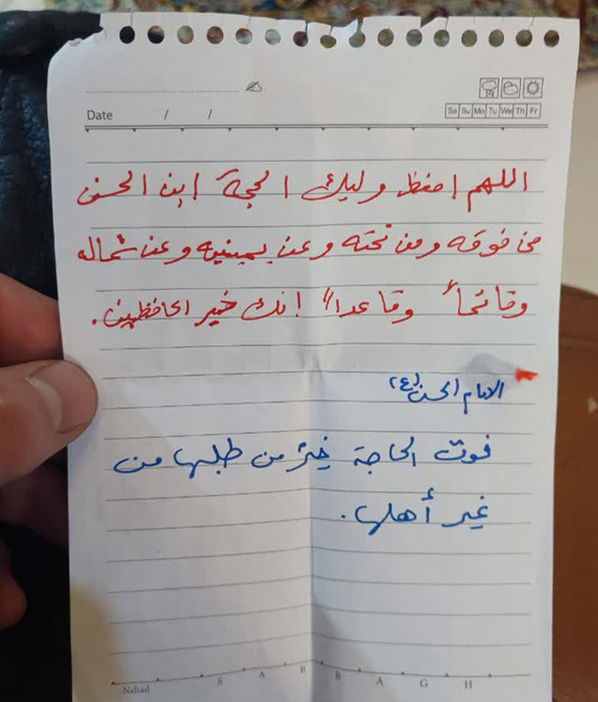 Date / /
Sa Su Mo Tu We Th Fr
اللهم احفظ وليك الحجة ابن الحسن
من فوقه ومن تحته وعن يمينه وعن شماله
وقائماً وقاعداً انك خير الحافظين.
الامام الحسن (ع)
فوت الحاجة خيرٌ من طلبها من
غير أهلها.
Nehad S A B B A G H